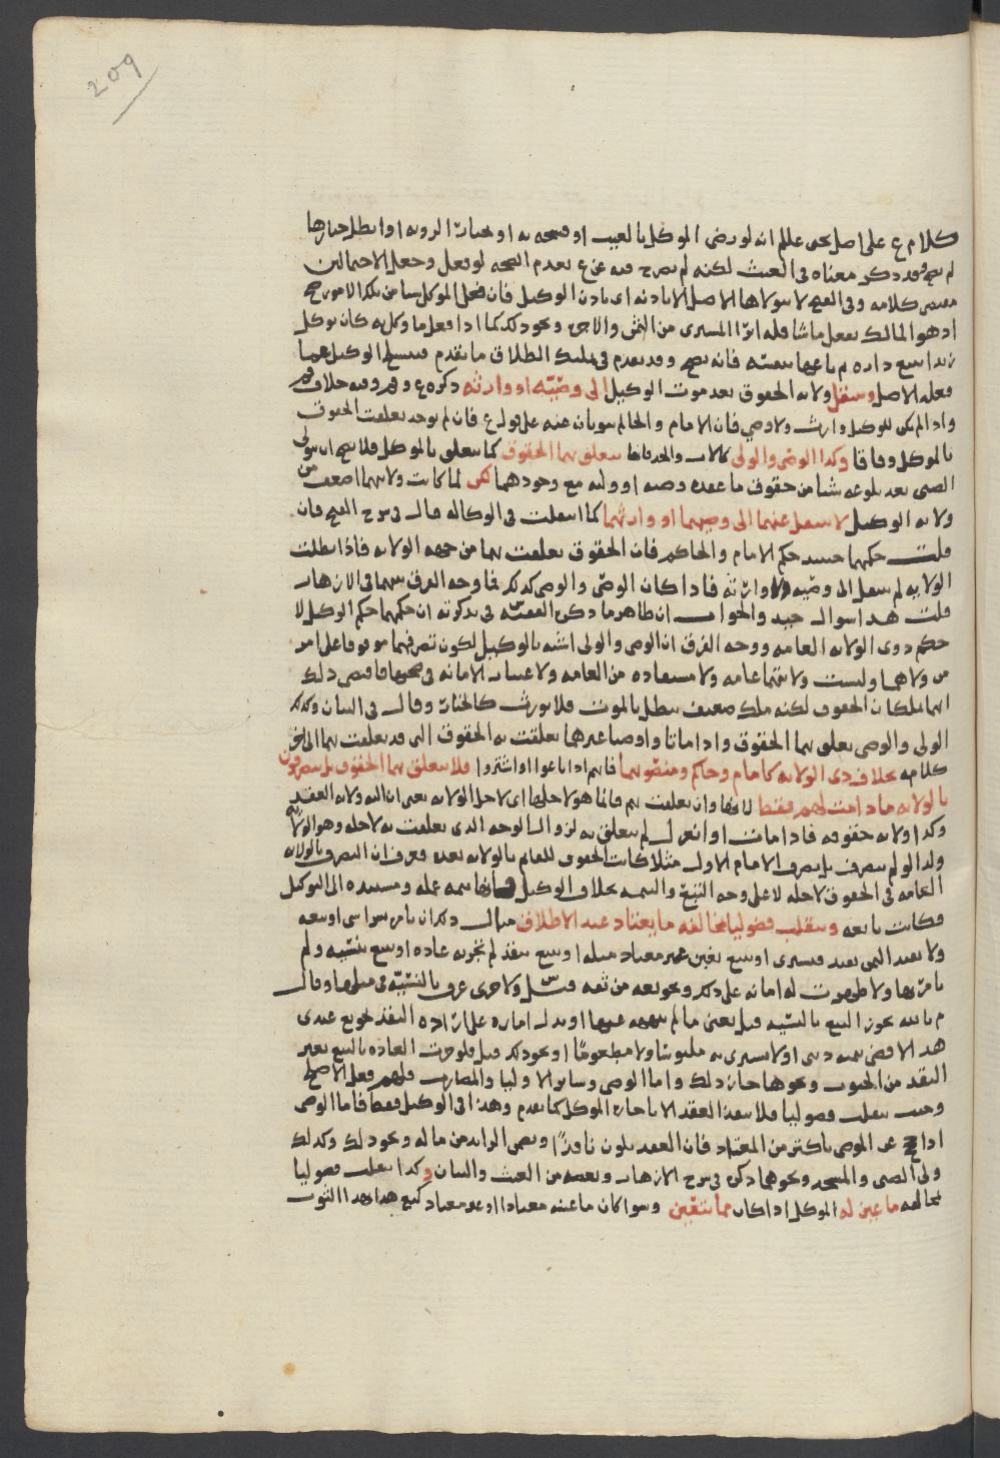 209
كلام ع على اصل يحيى عللم انه لو رضى الموكل بالعيب او فسخه به او بخيار الرويه او ابطل خيارها
لم يصح وقد ذكر معناه فى الغيث لكنه لم يصرح فيه عن ع بعدم الصحه لو فعل وجعل الاحتمالين
كلامه وفى الفتح لا يتولاها الاصل الا باذنه اى باذن الوكيل فان فعل الموكل شيا من تلك الامور صح
اذ هو المالك يفعل ما شا فله ابرا المشترى من الثمن والاجره ونحو ذلك كما اذا فعل ما وكل به كان يوكل
زيدا ببيع داره ثم باعها بنفسه فانه يصح وقد تقدم فى الطلاق ما تقدم الوكيل عما
فعله الاصل وتنتقل ولايه الحقوق بعد موت الوكيل الى وصيّه او وارثه ذكره ع وفيه خلاف
واذا لم يكن للوكيل وارث ولا وصي فان الامام والحاكم ينوبان عنه على قول ع فان لم يوجد تعلقت الحقوق
بالموكل وفاقا وكذا الوصى والولى كالاب والجد فانها تتعلق بهما الحقوق كما تتعلق بالموكل فلا يصح ان يتولى
الصبى بعد بلوغه شيا من حقوق ما عقده وصيه او وليه مع وجودهما لكن لما كانت ولايتهما اضعف من
ولايه الوكيل لا تنتقل عنهما الى وصيهما او وارثهما كما انتقلت فى الوكاله قال فى شرح الفتح فان
قلت حكمهما حينئذ حكم الامام والحاكم فان الحقوق تعلقت بهما من جهه الولايه فاذا بطلت
الولايه لم تنتقل الى وصيه ولا وارثه فاذا كان الوصى والولى كذلك فما وجه الفرق بينهما فى الازهار
قلت هذا سوال جيد والجواب ان ظاهر ما ذكره الفقيه س فى تذكرته ان حكمهما حكم الوكيل لا
حكم ذوى الولايه العامه ووجه الفرق ان الوصى والولى اشبه بالوكيل لكون تصرفهما موقوفا على امر
من ولاهما وليست ولايتهما عامه ولا مستفاده من العامه ولا اعتبار الامانه فى صحتها فاقتضى ذلك
انهما يملكان الحقوق لكنه ملك ضعيف يبطل بالموت فلا يورث كالخيار وقال فى البيان وكذلك
الولى والوصى تعلق بهما الحقوق واذا ماتا واوصيا غيرهما تعلقت به الحقوق التى قد تعلقت بهما الى اخر
كلامه بخلاف ذى الولايه كامام وحاكم ومنصوبهما فانهم اذا باعوا او اشتروا فلا تتعلق بهما الحقوق بل يتصرفون
بالولايه ما دامت لهم فقط لانها وان تعلقت بهم فانما هو لاجلها اى لاجل الولايه يعنى ان اليه ولايه العقد
وكذا ولايه حقوقه فاذا مات او انعزل لم يتعلق به لزوال الوجه الذى تعلقت به لاجله وهو الولايه
ولذا لو لم يتصرف بل تصرف الامام الاول مثلا كانت الحقوق للقائم بالولايه بعده فعرف ان التصرف بالولايه
العامه فى الحقوق لاجله لا على وجه التبع والتتمه بخلاف الوكيل فانها تتمه عمله ومستنده الى التوكيل
فكانت تابعه وينقلب فضوليا بمخالفه ما يعتاد عند الاطلاق مثال ذلك ان يامر بشرا شى او بيعه
ولا يعين الثمن بعد فيشترى او يبيع بغبن غير معتاد مثله او يبيع بنقد لم تجر به عاده او يبيع بنسيئه ولم
يامر بها ولا ظهرت له اماره على ذلك ونحو بيعه من ثقه ولا جرى عرف بالنسيئه فى مثلها وقال
م بالله يجوز البيع بالنسيئه قيل يعنى ما لم ينهه عنها او يدل اماره على اراده النقد نحو بع عبدى
هذا لاقضى بثمنه دينى او لا نشترى به ملبوسًا ولا مطعومًا او نحو ذلك قيل فلو جرت العاده بالبيع بغير
النقد من الحبوب ونحوها جاز ذلك واما الوصى وساير الاوليا والمضارب فلهم فعل الاصلح
وحيث ينقلب فضوليا فلا ينفذ العقد الا باجازه الموكل كما تقدم وهذا فى الوكيل فقط فاما الوصى
اذا حج عن الموصى باكثر من المعتاد فان العقد يكون نافذًا ويضمن الزايد من ماله ونحو ذلك وكذلك
ولى الصبى والمسجد ونحوهما ذكره فى شرح الازهار وبعضه من الغيث والبيان وكذا ينقلب فضوليا
بمخالفه ما عين له الموكل اذا كان مما يتعيّن وسوا كان ما عينه معتادا او غير معتاد كبع هذا بهذا الثوب